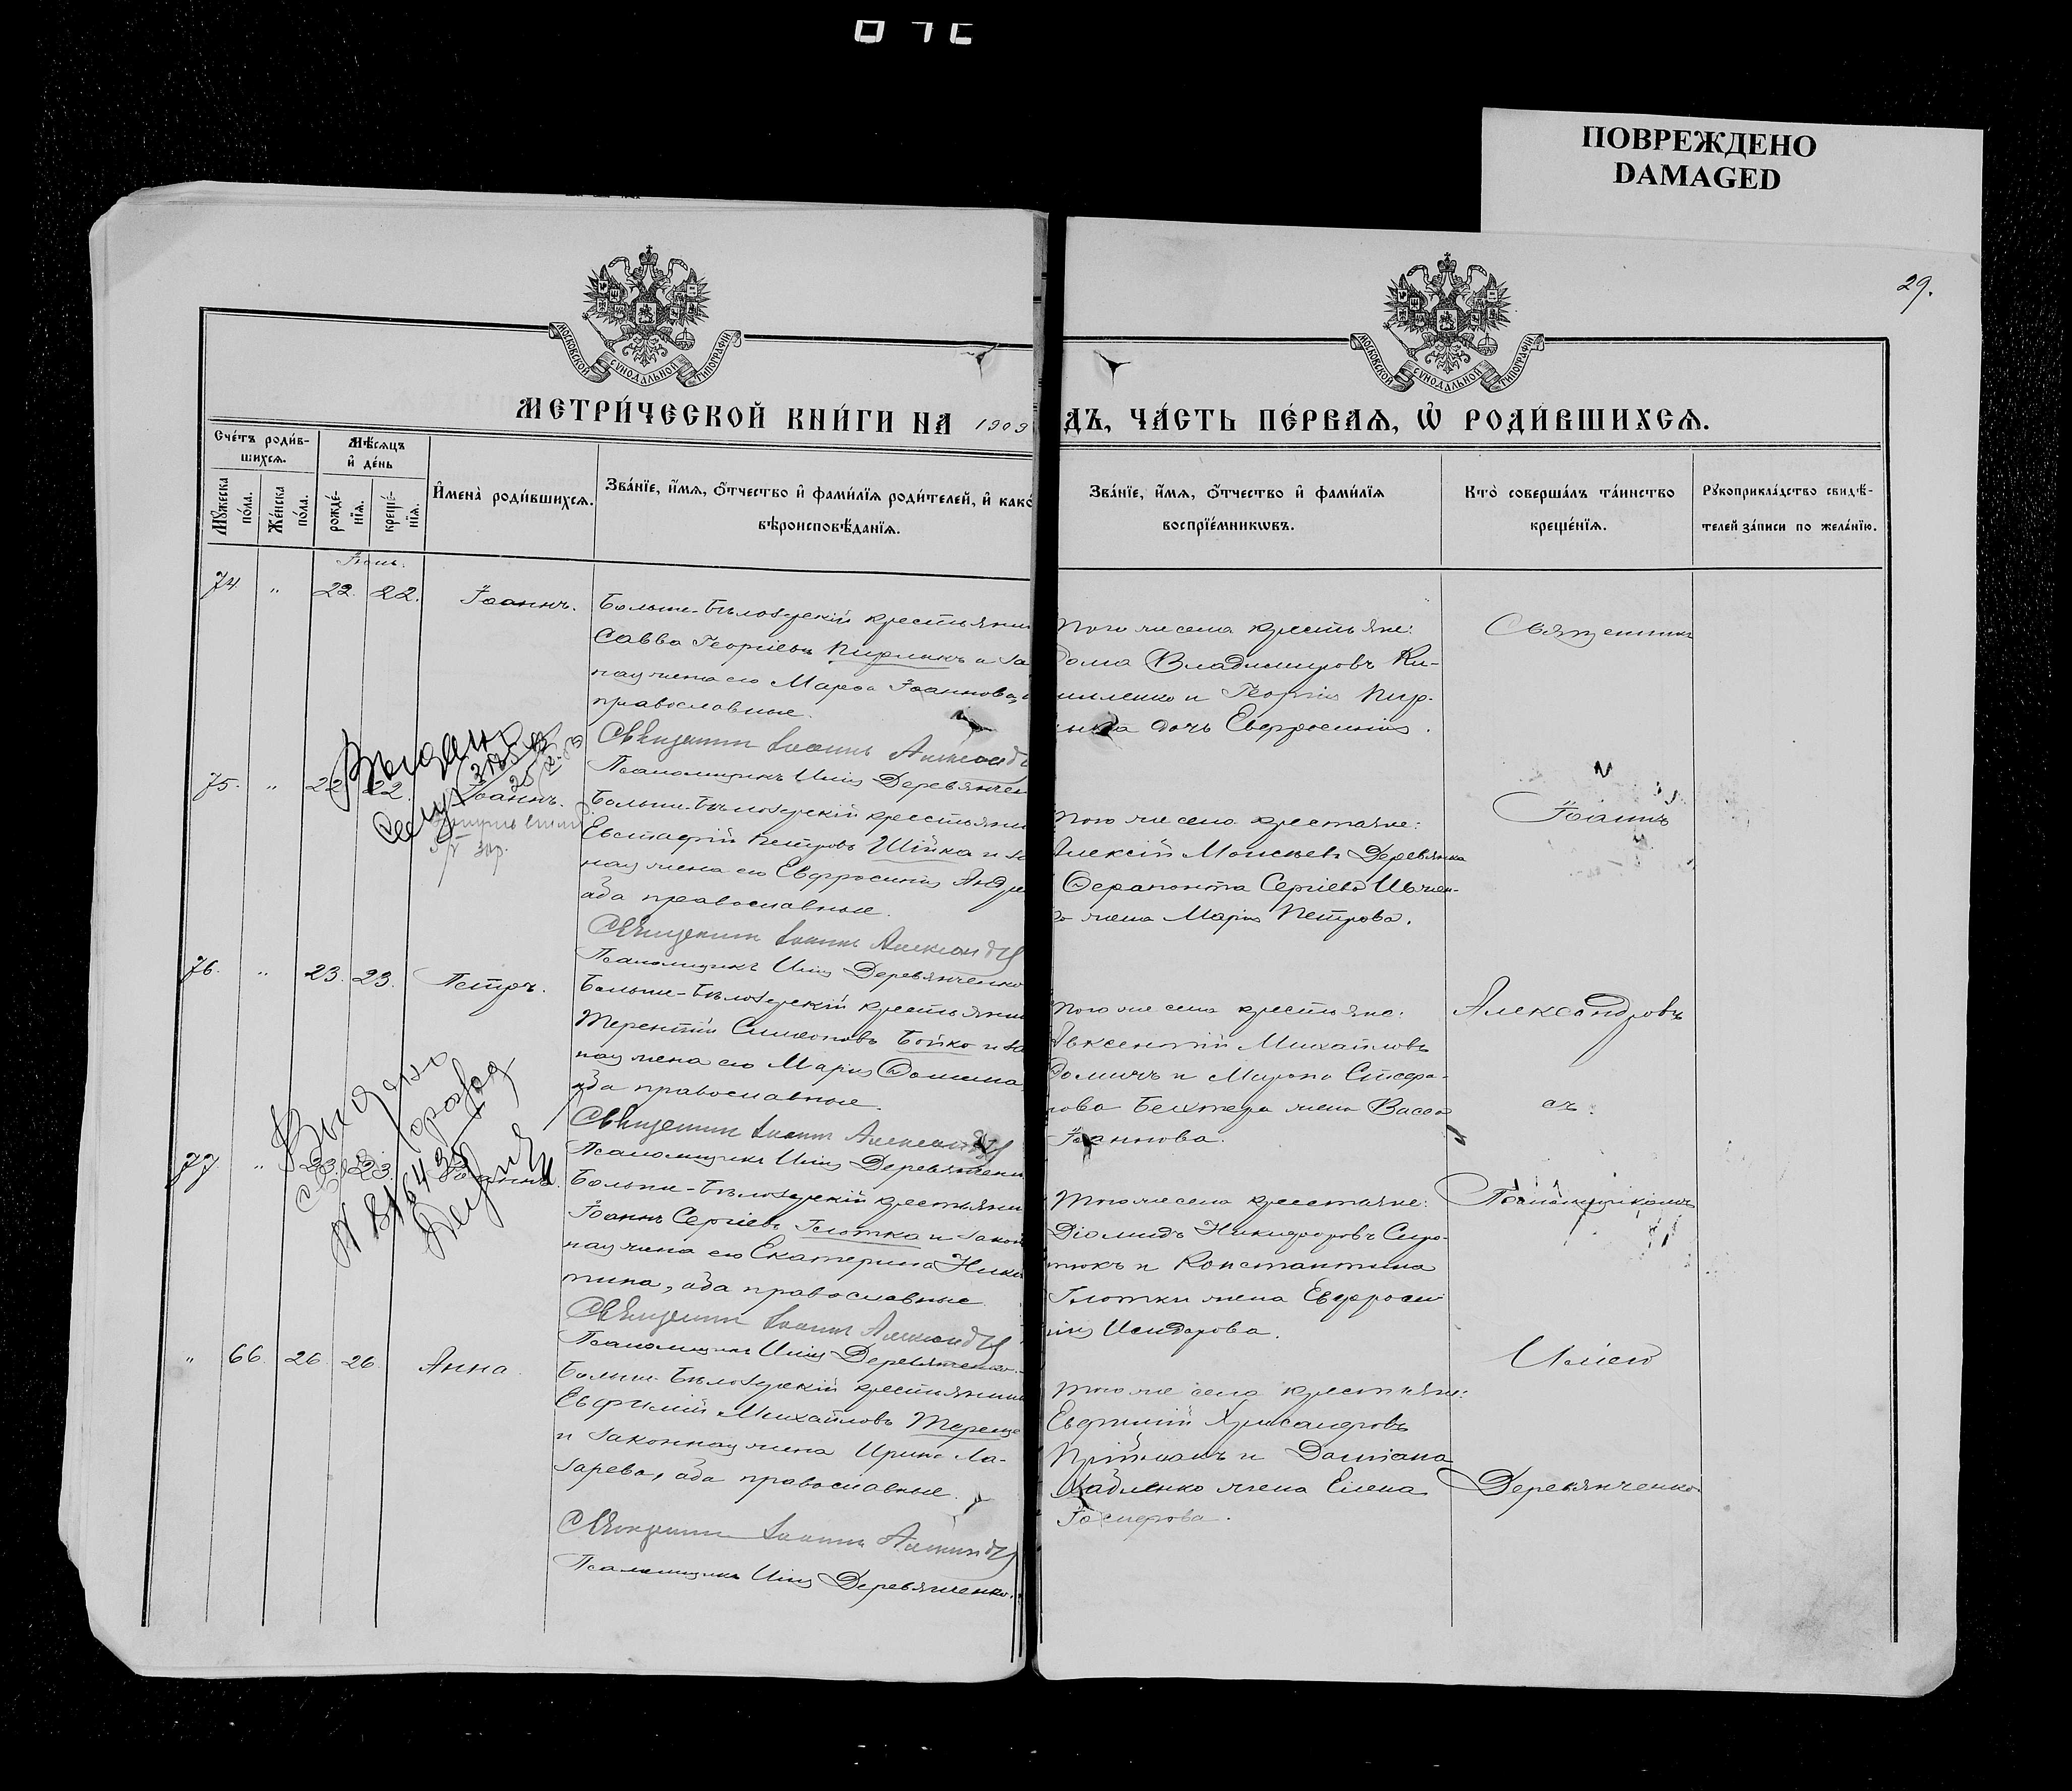 ПОВРЕЖДЕНО
DAMAGED
29.
МОСКОВСКОЙ СУНОДАЛЬНОЙ ТИПОГРАФІИ
МОСКОВСКОЙ СУНОДАЛЬНОЙ ТИПОГРАФІИ
МЕТРИ́ЧЕСКОЙ КНИ́ГИ НА 1909
ДЪ, ЧА́СТЬ ПЕ́РВАѦ, Ѡ҆ РОДИ́ВШИХСѦ.
Счетъ роди́в-
шихсѧ.
Мѣ́сѧцъ
и҆ де́нь
Мꙋжеска по́ла.
Же́нска по́ла.
рожде́-
нїѧ.
креще́-
нїѧ.
И҆мена̀ роди́вшихсѧ.
Зва́нїе, и҆́мѧ, ѻ҆́тчество и҆ фами́лїѧ роди́телей, и҆ како́
вѣроисповѣ́данїѧ.
Зва́нїе, и҆́мѧ, ѻ҆́тчество и҆ фами́лїѧ
воспрїе́мникѡвъ.
Кто̀ соверша́лъ та́инство
креще́нїѧ.
Рꙋкоприкла́дство свидѣ́-
телей за́писи по жела́нїю.
Іюнь.
74 " 22. 22. Іоаннъ.
Больше-Бѣлозерскій крестьянин
Савва Георгіевъ Пирликъ и за
ная жена его Марѳа Іоаннова,
православные.
Священникъ Іоаннъ Александ
Псаломщикъ Илія Деревянчен
того же села крестьяне:
Ѳома Владимировъ Ки-
и Георгія Пир-
дочь Евфросинія.
Выдано
75. " 22 22. Іоаннъ.
Больше-Бѣлозерскій крестьянин
Евстафій Петровъ Шійка и за
ная жена его Евфросинія Андре
ава православные.
Священникъ Іоаннъ Александ
Псаломщикъ Илія Деревянченко
того же села крестьяне:
Алексій Моисеевъ Деревянка
Ѳерапонта Сергіева Ивчен-
жена Марія Петрова.
76. " 23. 23. Петръ.
Больше-Бѣлозерскій крестьянин
Терентій Симеоновъ Бойко и за
ная жена его Марія Ѳомина
оба православные.
Священникъ Іоаннъ Александ
Псаломщикъ Илія Деревянчен
того же села крестьяне:
Авксентій Михайловъ
и Мирона Стефа-
нова Бехтера жена Васса
Іоаннова.
Выдано
77 " 23. 23. Іоаннъ.
Больше-Бѣлозерскій крестьянин
Іоаннъ Сергіевъ Глотка и закон
ная жена его Екатерина Ники
тина, оба православные.
Священникъ Іоаннъ Александ
Псаломщикъ Илія Деревянченко.
того же села крестьяне:
Діомидъ Никифоровъ Сиро-
тюкъ и Константина
Глотки жена Евфроси
нія Исидорова.
" 66. 26. 26. Анна.
Больше-Бѣлозерскій крестьянин
Евфимій Михайловъ Тереще
и законная жена Ирина Ла-
зарева, оба православные.
Священникъ Іоаннъ Александ
Псаломщикъ Илія Деревянченко.
того же села крестьяне:
Евфимій Хрисанфовъ
и Даміана
жена Елена
Іосифова.
Священник
Іоаннъ
Александровъ
съ
Псаломщикомъ
Иліею
Деревянченко